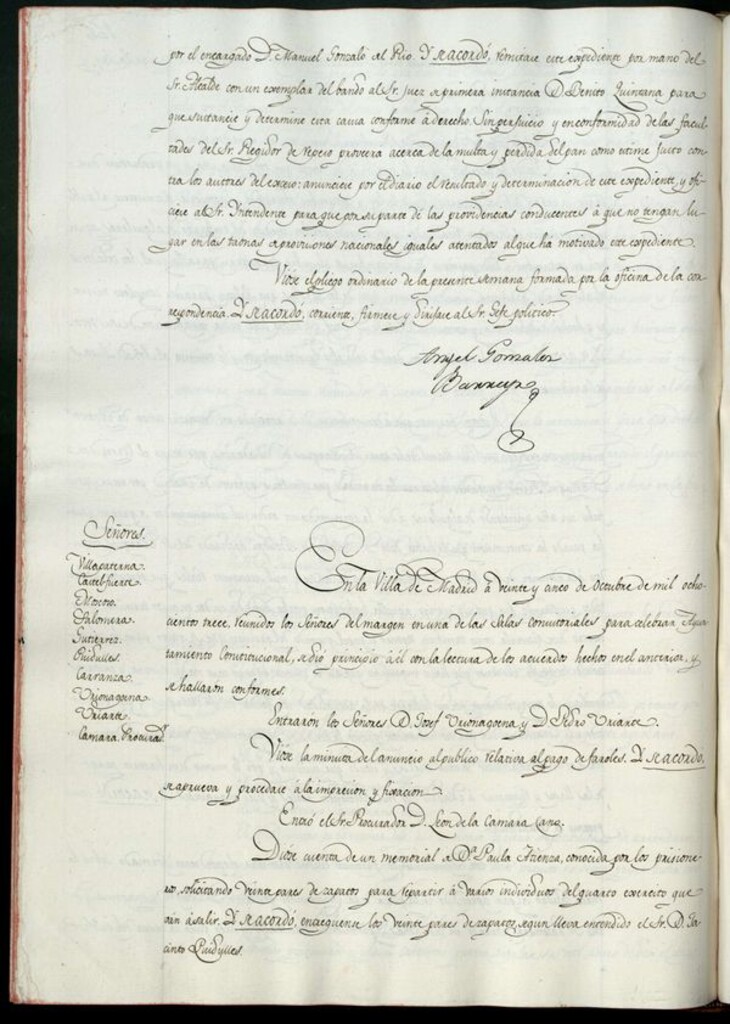 por el encargado D. Manuel Gonzalo del Rio. Y se acordó, remitase este expediente por mano del
Sr. Alcalde con un exemplar del bando al Sr. Juez de primera instancia D. Benito Quintana para
que sustancie y determine esta causa conforme à derecho. Sin perjuicio y en conformidad de las facul-
tades del Sr. Regidor de repeso proveerá acerca de la multa y perdida del pan como estime justo con-
tra los autores del exceso: anunciese por el diario el resultado y determinacion de este expediente, y ofi-
ciese al Sr. Yntendente para que por su parte dé las providencias conducentes à que no tengan lu-
gar en las tahonas de provisiones nacionales iguales atentados al que há motivado este expediente.
Viose el pliego ordinario de la presente semana formada por la oficina de la cor-
respondencia. Y se acordó, corriente, firmese y dirijase al Sr. Gefe politico.
Angel Gonzalez
Barreyro
Señores.
Villapaterna.
Castelfuerte.
Moscoso.
Palomera.
Gutierrez.
Puidulles.
Carranza.
Urionagoena.
Uriarte.
Camara. Procurad.r
En la Villa de Madrid à veinte y cinco de Octubre de mil ocho-
cientos trece, reunidos los Señores del margen en una de las Salas consistoriales para celebrar Ayun-
tamiento Constitucional, se dió principio à él con la lectura de los acuerdos hechos en el anterior, y
se hallaron conformes.
Entraron los Señores D. Josef Urionagoena, y D. Pedro Uriarte.
Viose la minuta del anuncio al publico relativa al pago de faroles. Y se acordó,
se aprueva y procedase à la impresion y fixacion.
Entró el Sr. Procurador D. Leon de la Camara Cano.
Diose cuenta de un memorial de D.ª Paula Atienza, conocida por los prisione-
ros, solicitando veinte pares de zapatos para repartir à varios individuos del quarto exercito que
ván à salir. Y se acordó, entreguense los veinte pares de zapatos, segun lleva entendido el Sr. D. Ja-
cinto Puidulles.